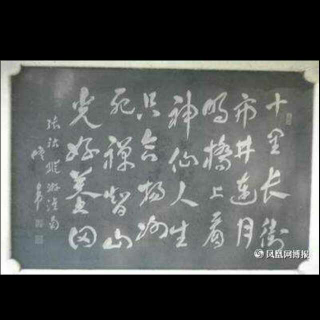 十里长街
市井連月
明橋上看
神仙人生
只合揚州
死禪智山
光好墓田
張祜縱游淮南
凤凰网博报